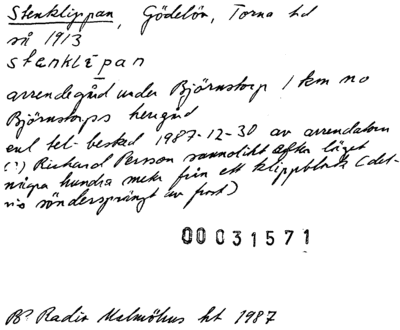 Stenklippan, Gödelöv, Torna hd
så 1913
stenklipan
arrendegård under Björnstorp 1 km no
Björnstorps herrgård
enl tel-besked 1987-12-30 av arrendatorn
(?) Richard Persson sannolikt efter läget
några hundra meter från ett klippblock (det-
ta söndersprängt av frost)
00031571
Radio Malmöhus ht 1987